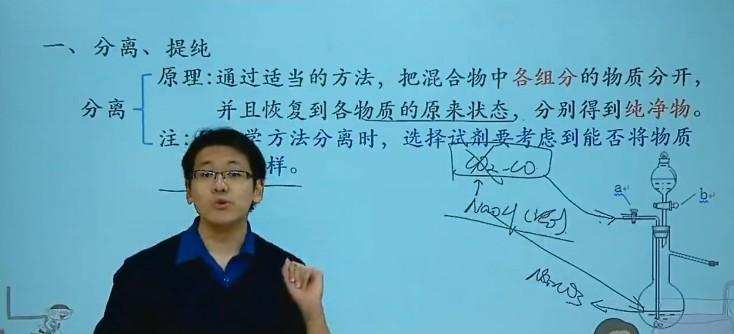 一、分离、提纯
分离
原理:通过适当的方法，把混合物中各组分的物质分开，
并且恢复到各物质的原来状态，分别得到纯净物。
注:学方法分离时，选择试剂要考虑到能否将物质
样。
CO₂-CO
a
b
NaOH
Na₂CO₃